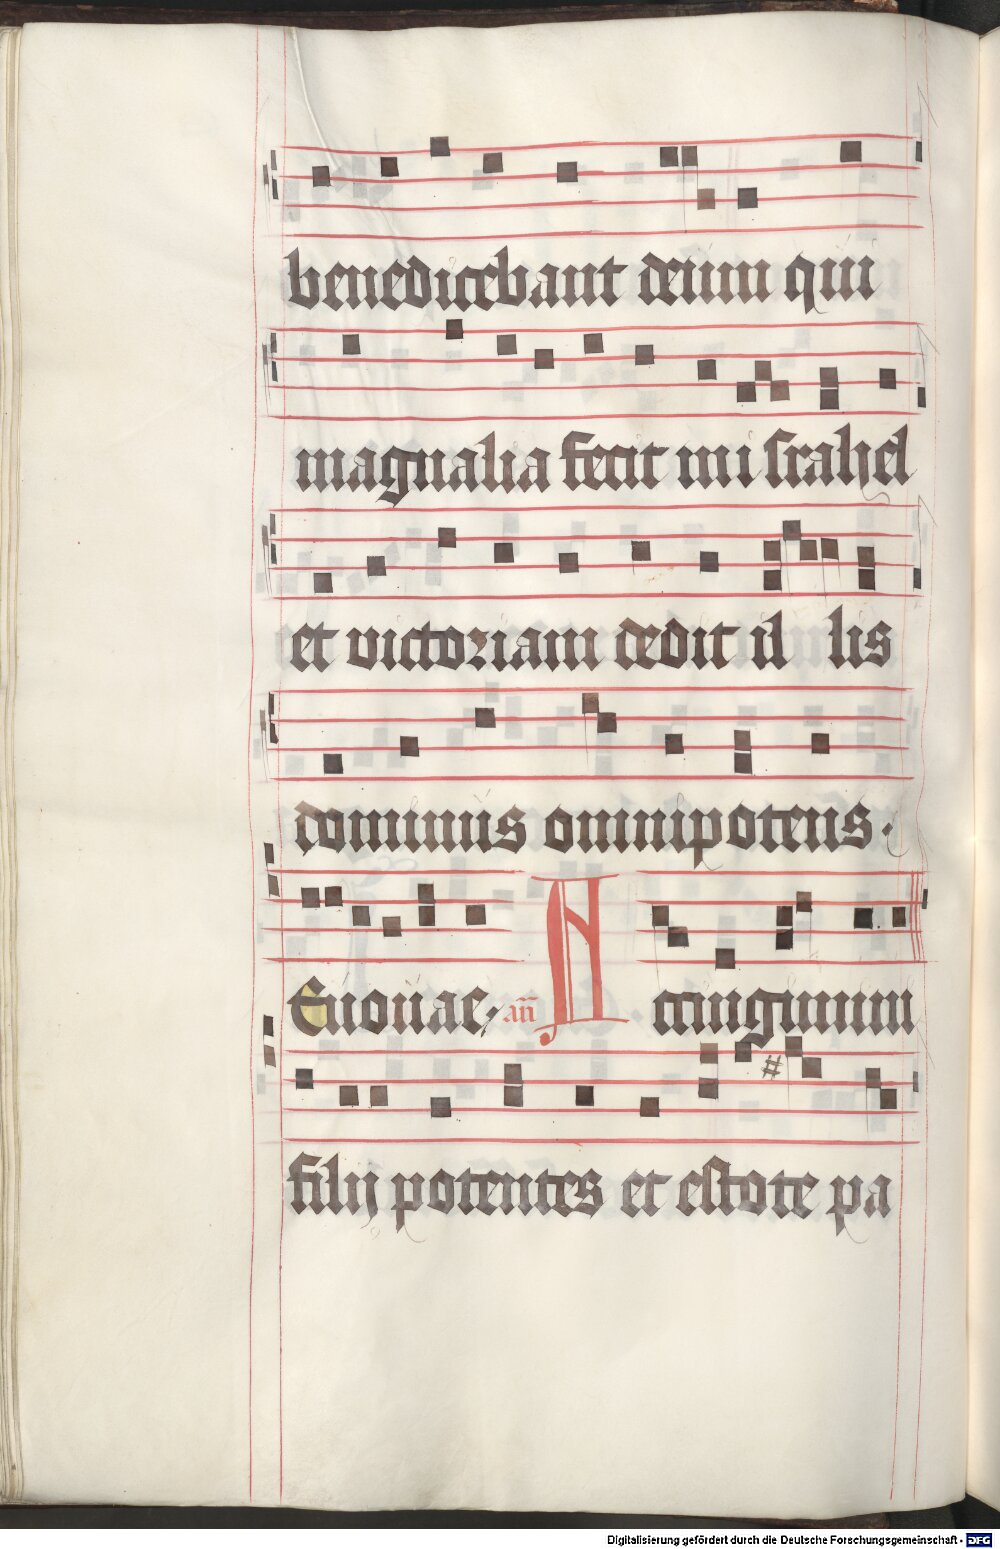 benedicebant deum qui
magnalia fecit in israhel
et victoriam dedit il lis
dominus omnipotens.
Euouae. an̄ A ccingimini
filij potentes et estote pa
Digitalisierung gefördert durch die Deutsche Forschungsgemeinschaft - DFG